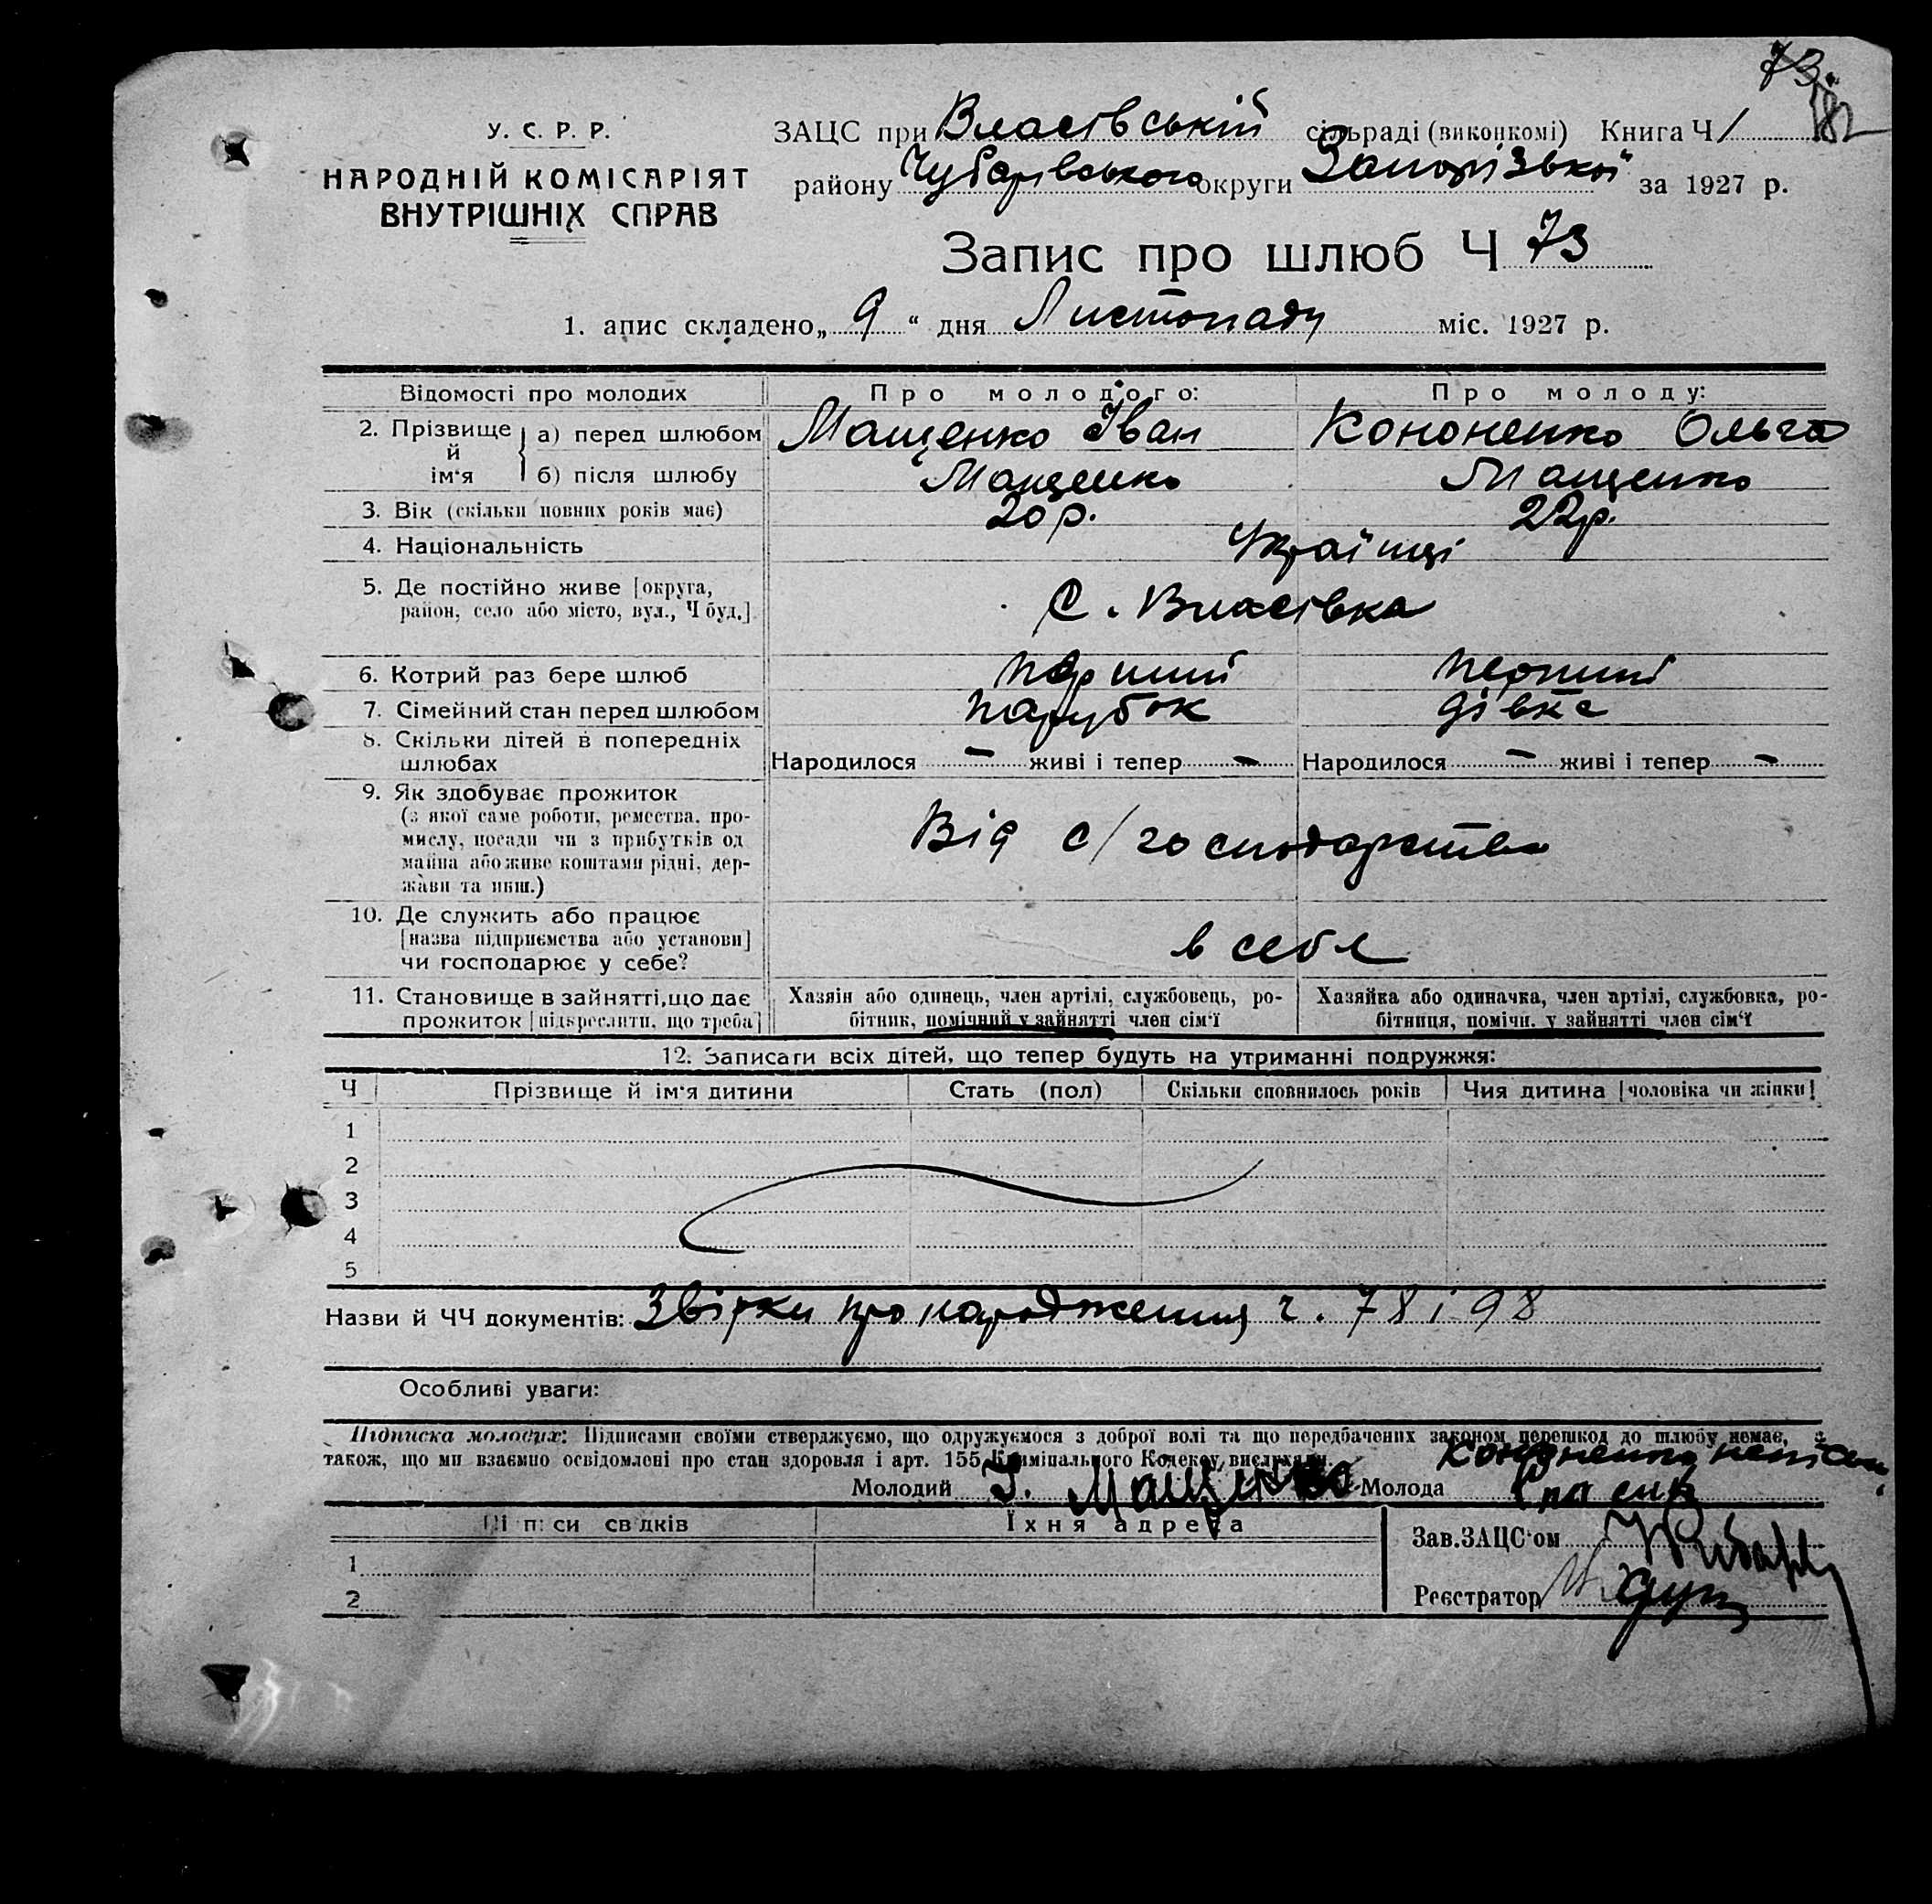 73.
182
У. С. Р. Р.
НАРОДНІЙ КОМІСАРІЯТ
ВНУТРІШНІХ СПРАВ
ЗАЦС при Власівській сільраді (виконкомі) Книга Ч 1
району Чубарівського округи Запорізької за 1927 р.
Запис про шлюб Ч 73
1. апис складено „ 9 “ дня Листопаду міс. 1927 р.
Відомості про молодих Про молодого: Про молоду:
2. Прізвище й ім'я а) перед шлюбом Мащенко Іван Кононенко Ольга
б) після шлюбу Мащенко Мащенко
3. Вік (скільки повних років має) 20 р. 22 р.
4. Національність Українці
5. Де постійно живе [округа,
район, село або місто, вул., Ч буд.] С. Власівка
6. Котрий раз бере шлюб перший перший
7. Сімейний стан перед шлюбом парубок дівка
8. Скільки дітей в попередніх
шлюбах Народилося – живі і тепер – Народилося – живі і тепер –
9. Як здобуває прожиток
(з якої саме роботи, ремества, про-
мислу, посади чи з прибутків од
майна або живе коштами рідні, дер-
жави та инш.) Від с/господарства
10. Де служить або працює
[назва підприємства або установи]
чи господарює у себе? в себе
11. Становище в зайнятті, що дає
прожиток [підкреслити, що треба]
Хазяін або одинець, член артілі, службовець, ро-
бітник, помічний у зайнятті член сім'ї
Хазяйка або одиначка, член артілі, службовка, ро-
бітниця, помічн. у зайнятті член сім'ї
12. Записати всіх дітей, що тепер будуть на утриманні подружжя:
Ч Прізвище й ім'я дитини Стать (пол) Скільки сповнилось років Чия дитина [чоловіка чи жінки]
1
2
3
4
5
Назви й ЧЧ документів: Звірки про народження ч. 78 і 98
Особливі уваги:
Підписка молодих: Підписами своїми стверджуємо, що одружуємося з доброї волі та що передбачених законом перешкод до шлюбу немає, а
також, що ми взаємно освідомлені про стан здоровля і арт. 155 Кримінального Кодексу вислухали.
Молодий І. Мащенко Молода Кононенко
Підписи свідків Їхня адреса
1
2
Зав. ЗАЦС'ом
Реєстратор